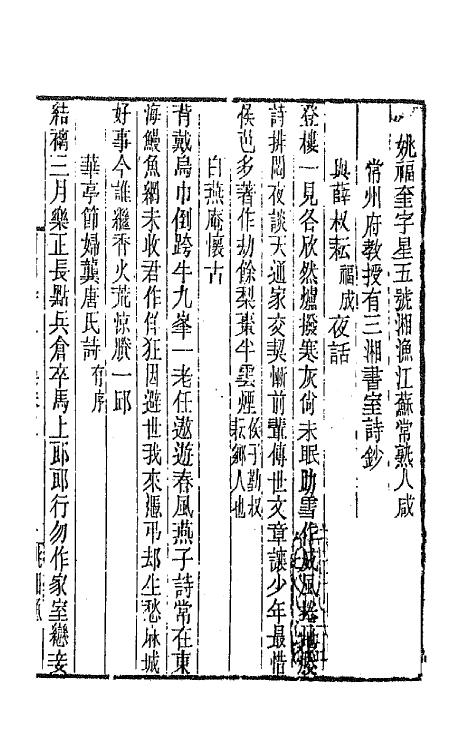 姚福奎字星五號湘漁江蘇常熟人咸
常州府教授有三湘書室詩鈔
與薛叔耘福成夜話
登樓一見各欣然爐撥寒灰尙未眠助雪作威風
詩排悶夜談天通家交契慚前輩傳世文章讓少年最惜
侯芭多著作劫餘梨棗半雲煙侯子勤叔耘鄉人也
白燕庵懷古
背戴烏巾倒跨牛九峯一老任遨遊春風燕子詩常在東
海鰻魚網未收君作佯狂因避世我來憑弔却生愁麻城
好事今誰繼香火荒凉賸一邱
華亭節婦龔唐氏詩有序
結褵三月樂正長點兵倉卒馬上郎郎行勿作家室戀妾